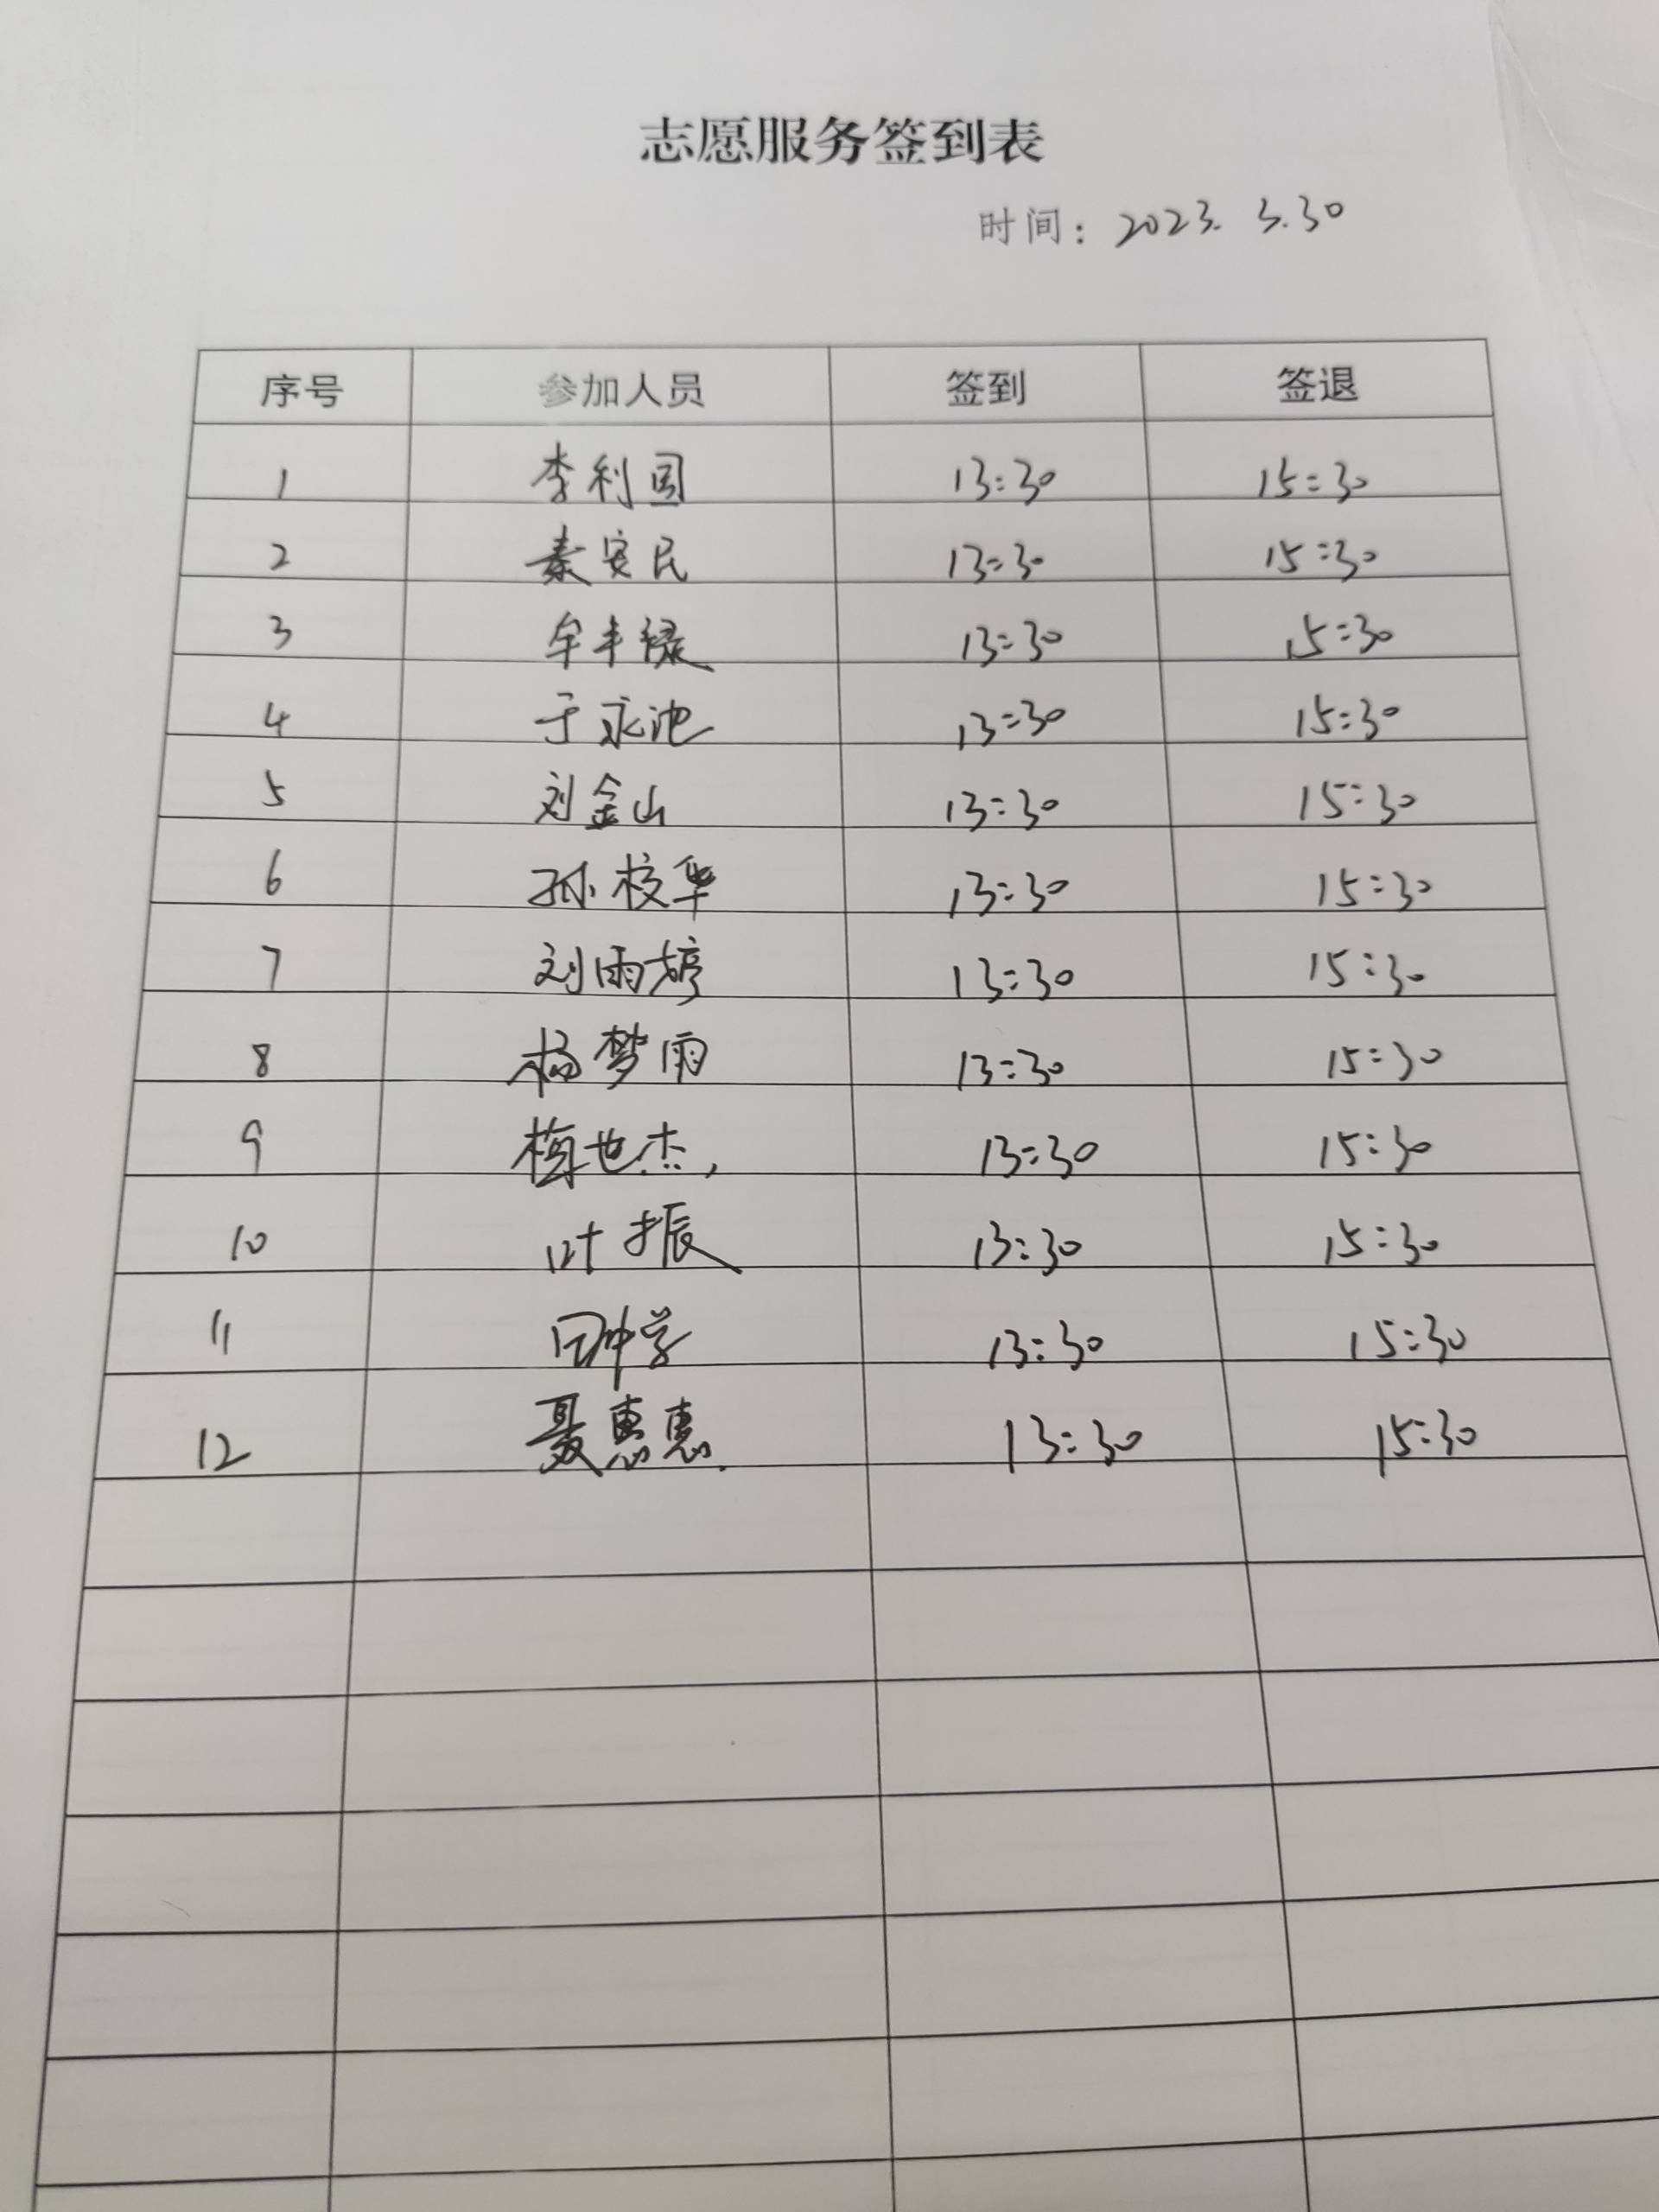 志愿服务签到表
时间：2023.3.30
序号 参加人员 签到 签退
1 李利国 13:30 15:30
2 秦安民 13:30 15:30
3 牟丰禄 13:30 15:30
4 于永池 13:30 15:30
5 刘金山 13:30 15:30
6 孙枝华 13:30 15:30
7 刘雨婷 13:30 15:30
8 杨梦雨 13:30 15:30
9 梅世杰 13:30 15:30
10 叶振 13:30 15:30
11 田中学 13:30 15:30
12 聂惠惠 13:30 15:30